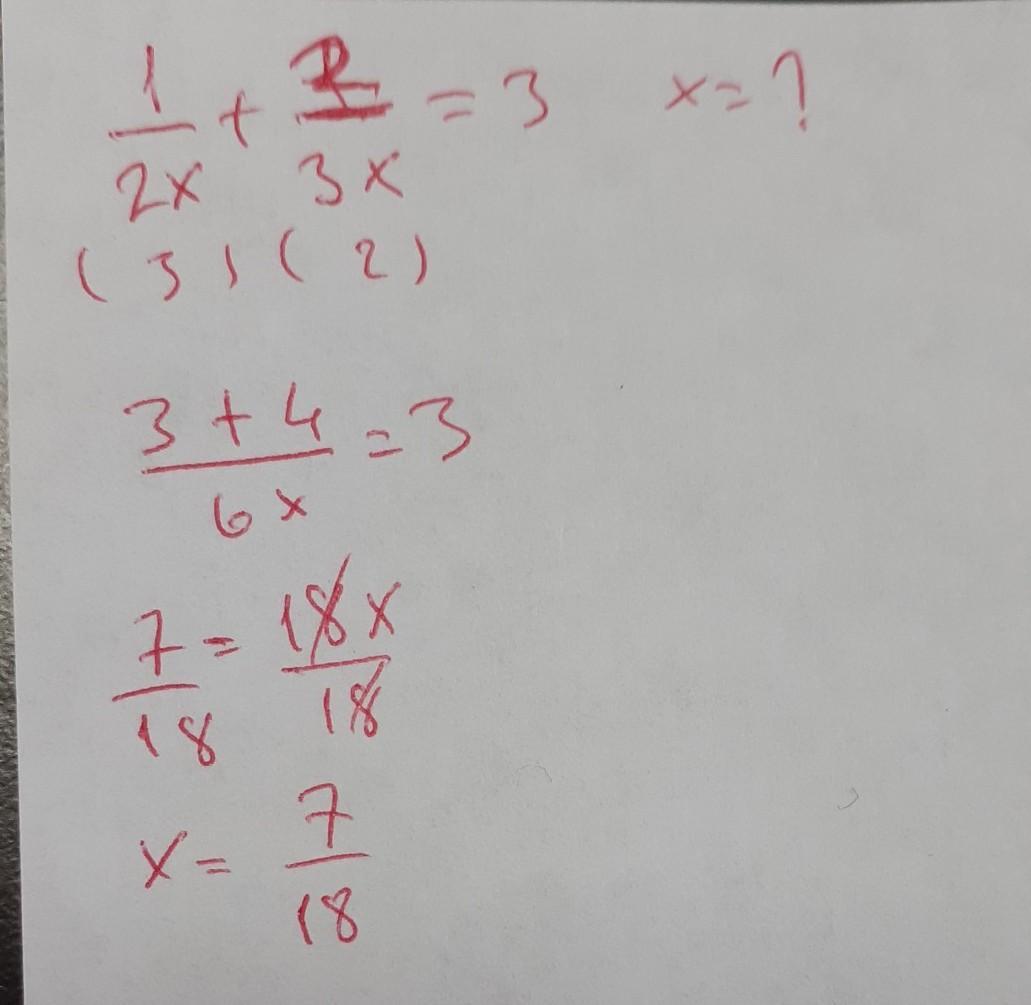 1/2x + 2/3x = 3 x = ?
(3) (2)
3 + 4/6x = 3
7/18 = 18x/18
x = 7/18